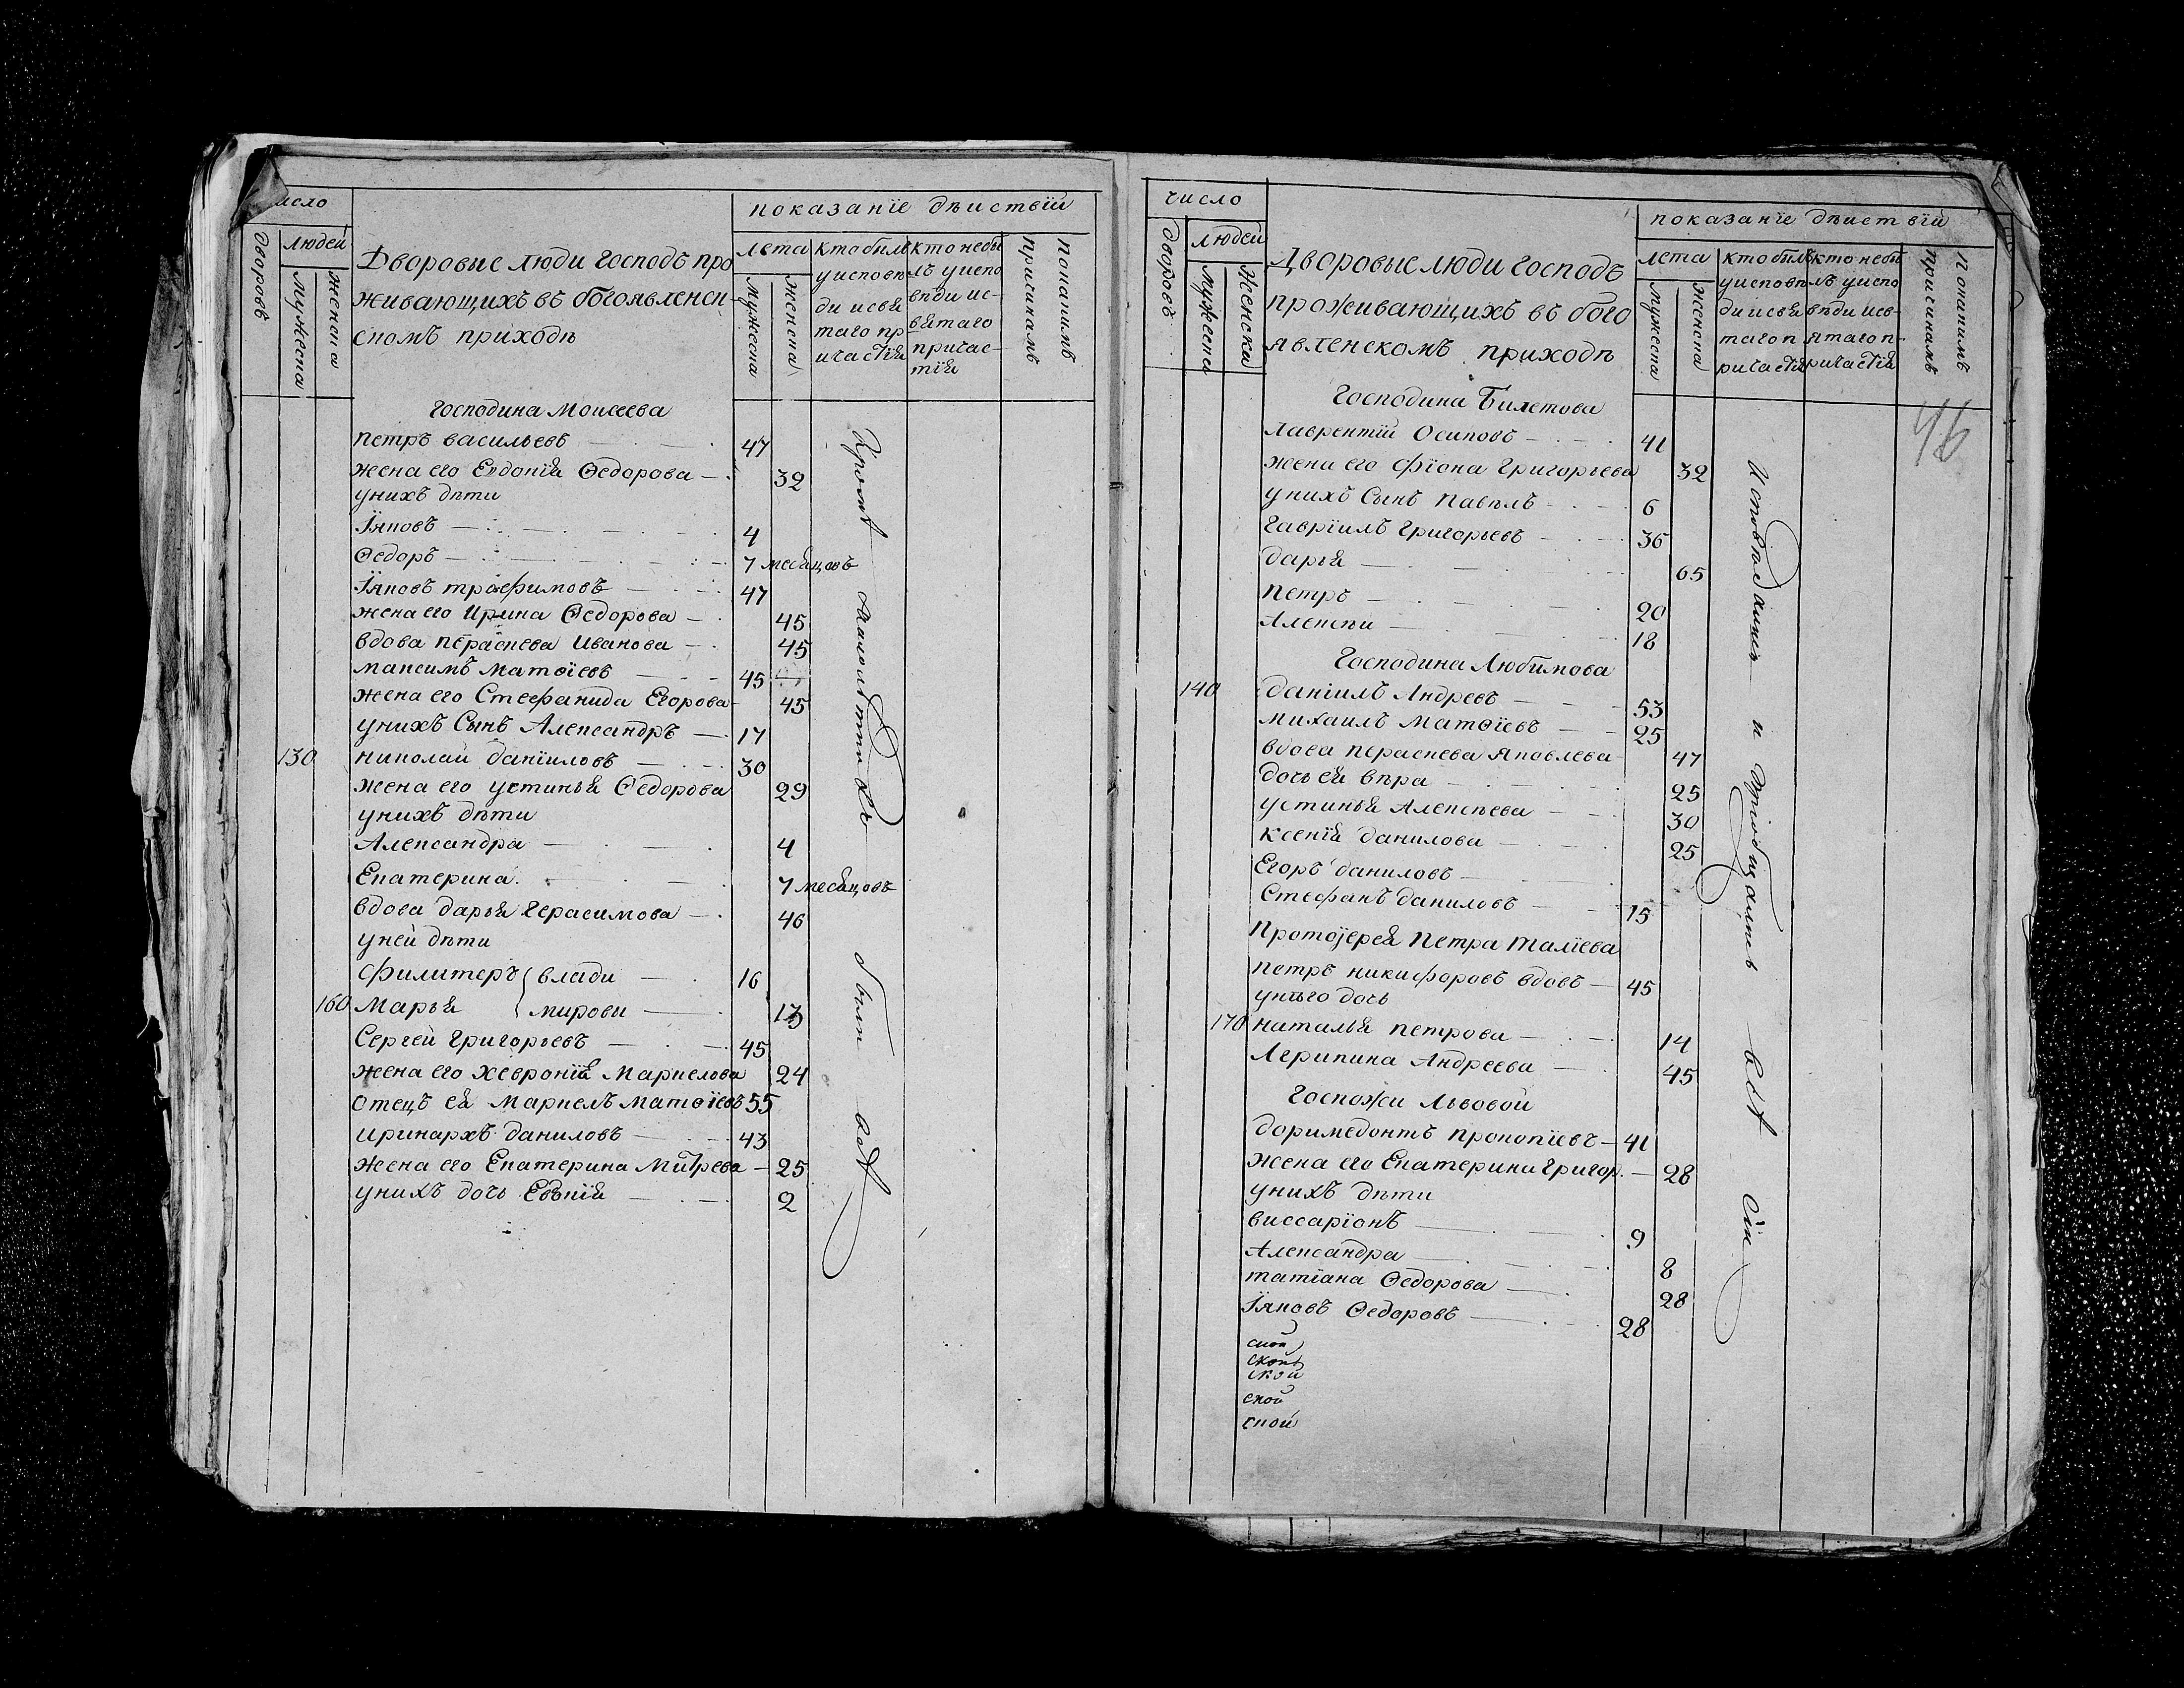 число
показанїе дѣиствїи
дворовъ
людей
мужеска
женска
Дворовые люди господъ про
живающихъ въ богоявленск-
комъ приходѣ
лета
мужеска
женска
кто билъ
у исповѣ
ди и свя
таго пр
ичастїя
кто небы
лъ у испо
вѣди ис-
вятаго
причас-
тїя
покакимъ
причинамъ
Господина Моисеева
Петръ васильевъ 47
жена его Евдокїя Ѳедорова 32
унихъ дѣти
Їяковъ 4
Ѳедоръ 7 месяцовъ
Їяковъ трафимовъ 47
жена его Ирина Ѳедорова 45
вдова перасковa Иванова 45
максимъ матѳїевъ 45
жена его Стефанида Егорова 45
унихъ Сынъ Александръ 17
130 николаи данїиловъ 30
жена его устинья Ѳедорова 29
унихъ дѣти
Александра 4
Екатерина 7 месяцовъ
вдова дарья Герасимова 46
уней дѣти
Филитеръ влади 16
160 Марья мирови 13
Сергей григорьевъ 45
жена его хеврония Маркелова 24
отецъ ея Маркелъ матѳїевъ 55
иринархъ даниловъ 43
жена его Екатерина Митрева 25
унихъ дочь Евдокїя 2
Кромѣ малолѣтныхъ были всѣ
число
показанїе дѣиствїи
дворовъ
людей
мужеска
женска
Дворовые люди господъ
проживающихъ въ бого
явленскомъ приходѣ
лета
мужеска
женска
кто билъ
у исповѣ
ди и свя
таго п
ричастїя
кто небы
лъ у испо
вѣди исв-
ятаго п-
ричастїя
покакимъ
причинамъ
46
Господина Билетова
лаврентїй Осиповъ 41
жена его фїона григорьева 32
унихъ Сынъ павелъ 6
гаврїилъ григорьевъ 36
дарья 65
Петръ 20
Алексѣи 18
Господина Любимова
140 данїилъ Андревъ 53
михаилъ матѳїевъ 25
вдова перасковa яковлева 47
дочь ея вѣра 25
устинья Алексѣева 30
ксенїя данилова 25
Егоръ даниловъ
Стефанъ даниловъ 15
Протоїерея Петра талїева
петръ никифоровъ вдовъ 45
унѣго дочь
170 наталья петрова 14
Агрипина Андреева 45
Госпожи Львовой
доримедонтъ прокопїевъ 41
жена его Екатерина григор. 28
унихъ дѣти
виссарїонъ 9
Александра 8
татїана Ѳедорова 28
Їяковъ Ѳедоровъ 28
ской
ской
ской
ской
ской
Исповѣдались и приобщались всѣ сїи